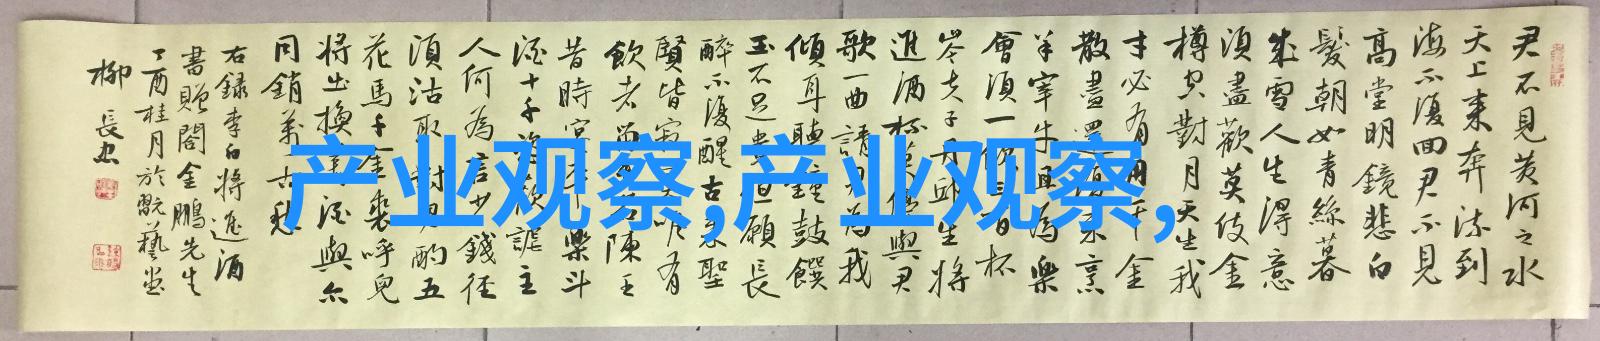 君不見黄河之水
天上来奔流到
海不復回君不見
高堂明鏡悲白
髮朝如青絲暮
成雪人生得意
須盡歡莫使金
樽空對月天生我
才必有用千金
散盡還復来烹
羊宰牛且為樂
會須一飲三百杯
岑夫子丹邱生將
進酒杯莫停與君
歌一曲請君為我
傾耳聽鐘鼓饌
玉不足貴但願長
醉不復醒古来聖
賢皆寂寞唯有
飲者留其名陳王
昔時宴平樂斗
酒十千恣歡謔主
人何為言少錢径
須沽取對君酌五
花馬千金裘呼兒
將出換美酒與尔
同銷萬古愁
右録李白將進酒
書贈閻金鵬先生
丁酉桂月於翫藝堂
柳長忠
产业观察,产业观察,